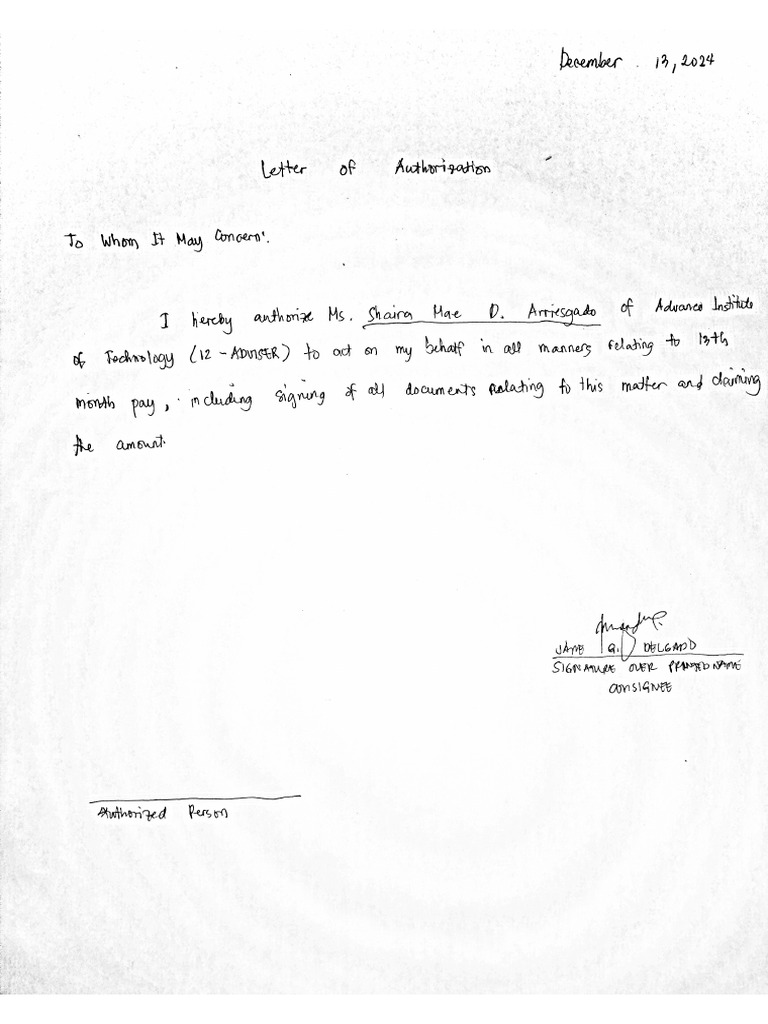 December 13, 2024
Letter of Authorization
To Whom It May Concern:
I hereby authorize Ms. Shaira Mae D. Arriesgado of Advance Institute
of Technology (12 - ADVISER) to act on my behalf in all manners relating to 13th
month pay, including signing of all documents relating to this matter and claiming
the amount.
JANE G. DELGADO
SIGNATURE OVER PRINTED NAME
CONSIGNEE
Authorized Person